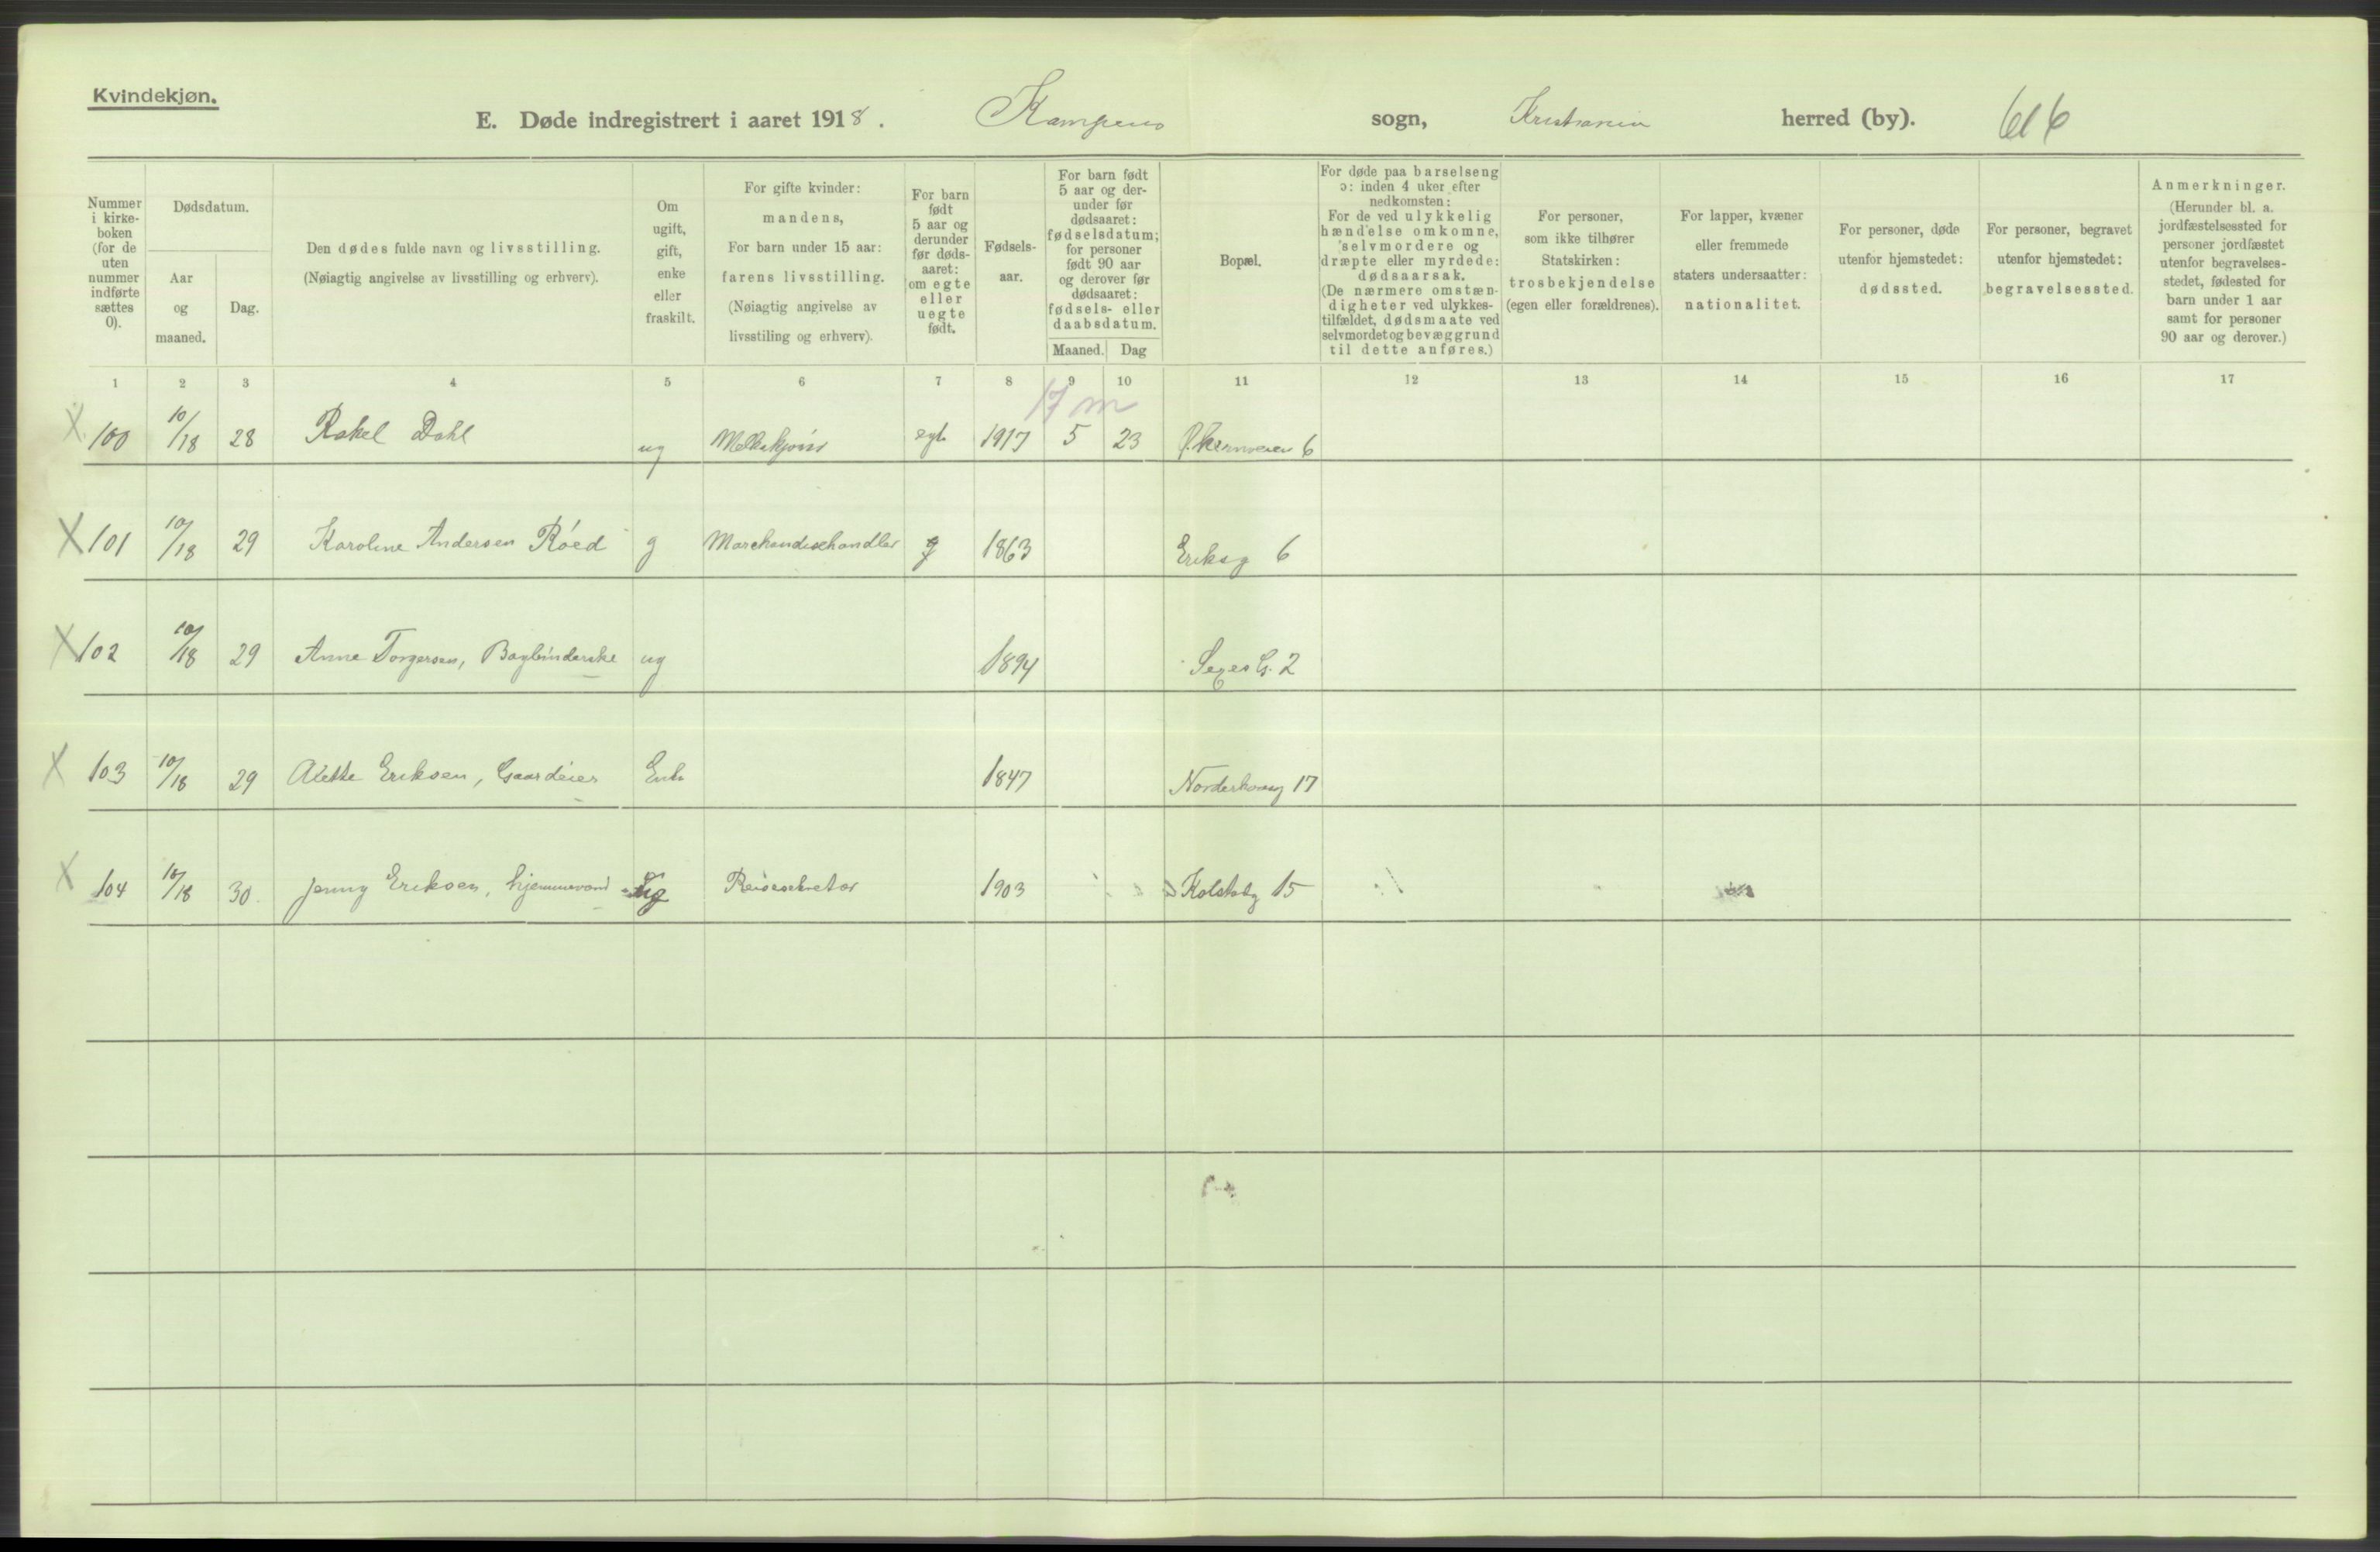 Kvindekjøn.
E. Døde indregistrert i aaret 1918. Kampens sogn, Kristiania herred (by). 616
Nummer i kirke-boken (for de uten nummer indførte sættes 0).
Dødsdatum.
Aar og maaned.
Dag.
Den dødes fulde navn og livsstilling.
(Nøiagtig angivelse av livsstilling og erhverv).
Om ugift, gift, enke eller fraskilt.
For gifte kvinder: mandens,
For barn under 15 aar: farens livsstilling.
(Nøiagtig angivelse av livsstiling og erhverv).
For barn født 5 aar og derunder før døds-aaret: om egte eller uegte født.
Fødsels-aar.
For barn født 5 aar og der-under før dødsaaret: fødselsdatum; for personer født 90 aar og derover før dødsaaret: fødsels- eller daabsdatum.
Maaned. Dag
Bopæl.
For døde paa barselseng ɔ: inden 4 uker efter nedkomsten:
For de ved ulykkelig hændelse omkomne, selvmordere og dræpte eller myrdede: dødsaarsak.
(De nærmere omstæn-digheter ved ulykkes-tilfældet, dødsmaate ved selvmordet og bevæggrund til dette anføres.)
For personer, som ikke tilhører Statskirken: trosbekjendelse (egen eller forældrenes).
For lapper, kvæner eller fremmede staters undersaatter: nationalitet.
For personer, døde utenfor hjemstedet: dødssted.
For personer, begravet utenfor hjemstedet: begravelsessted.
Anmerkninger.
(Herunder bl. a. jordfæstelsessted for personer jordfæstet utenfor begravelses-stedet, fødested for barn under 1 aar samt for personer 90 aar og derover.)
1 2 3 4 5 6 7 8 9 10 11 12 13 14 15 16 17
17 m
X 100 10/18 28 Rakel Dahl ug Melkekjører egte 1917 5 23 Økernveien 6
X 101 10/18 29 Karoline Andersen Röed g Marchandisehandler g 1863 Eriksg 6
X 102 10/18 29 Anne Torgersen, Bogbinderske ug 1894 Sexes G. 2
X 103 10/18 29 Alette Eriksen, Gaardeier Enke 1847 Norderhovg 17
X 104 10/18 30. Jenny Eriksen, hjemmevær. ug Reisesekretær 1903 Kolstadg 15